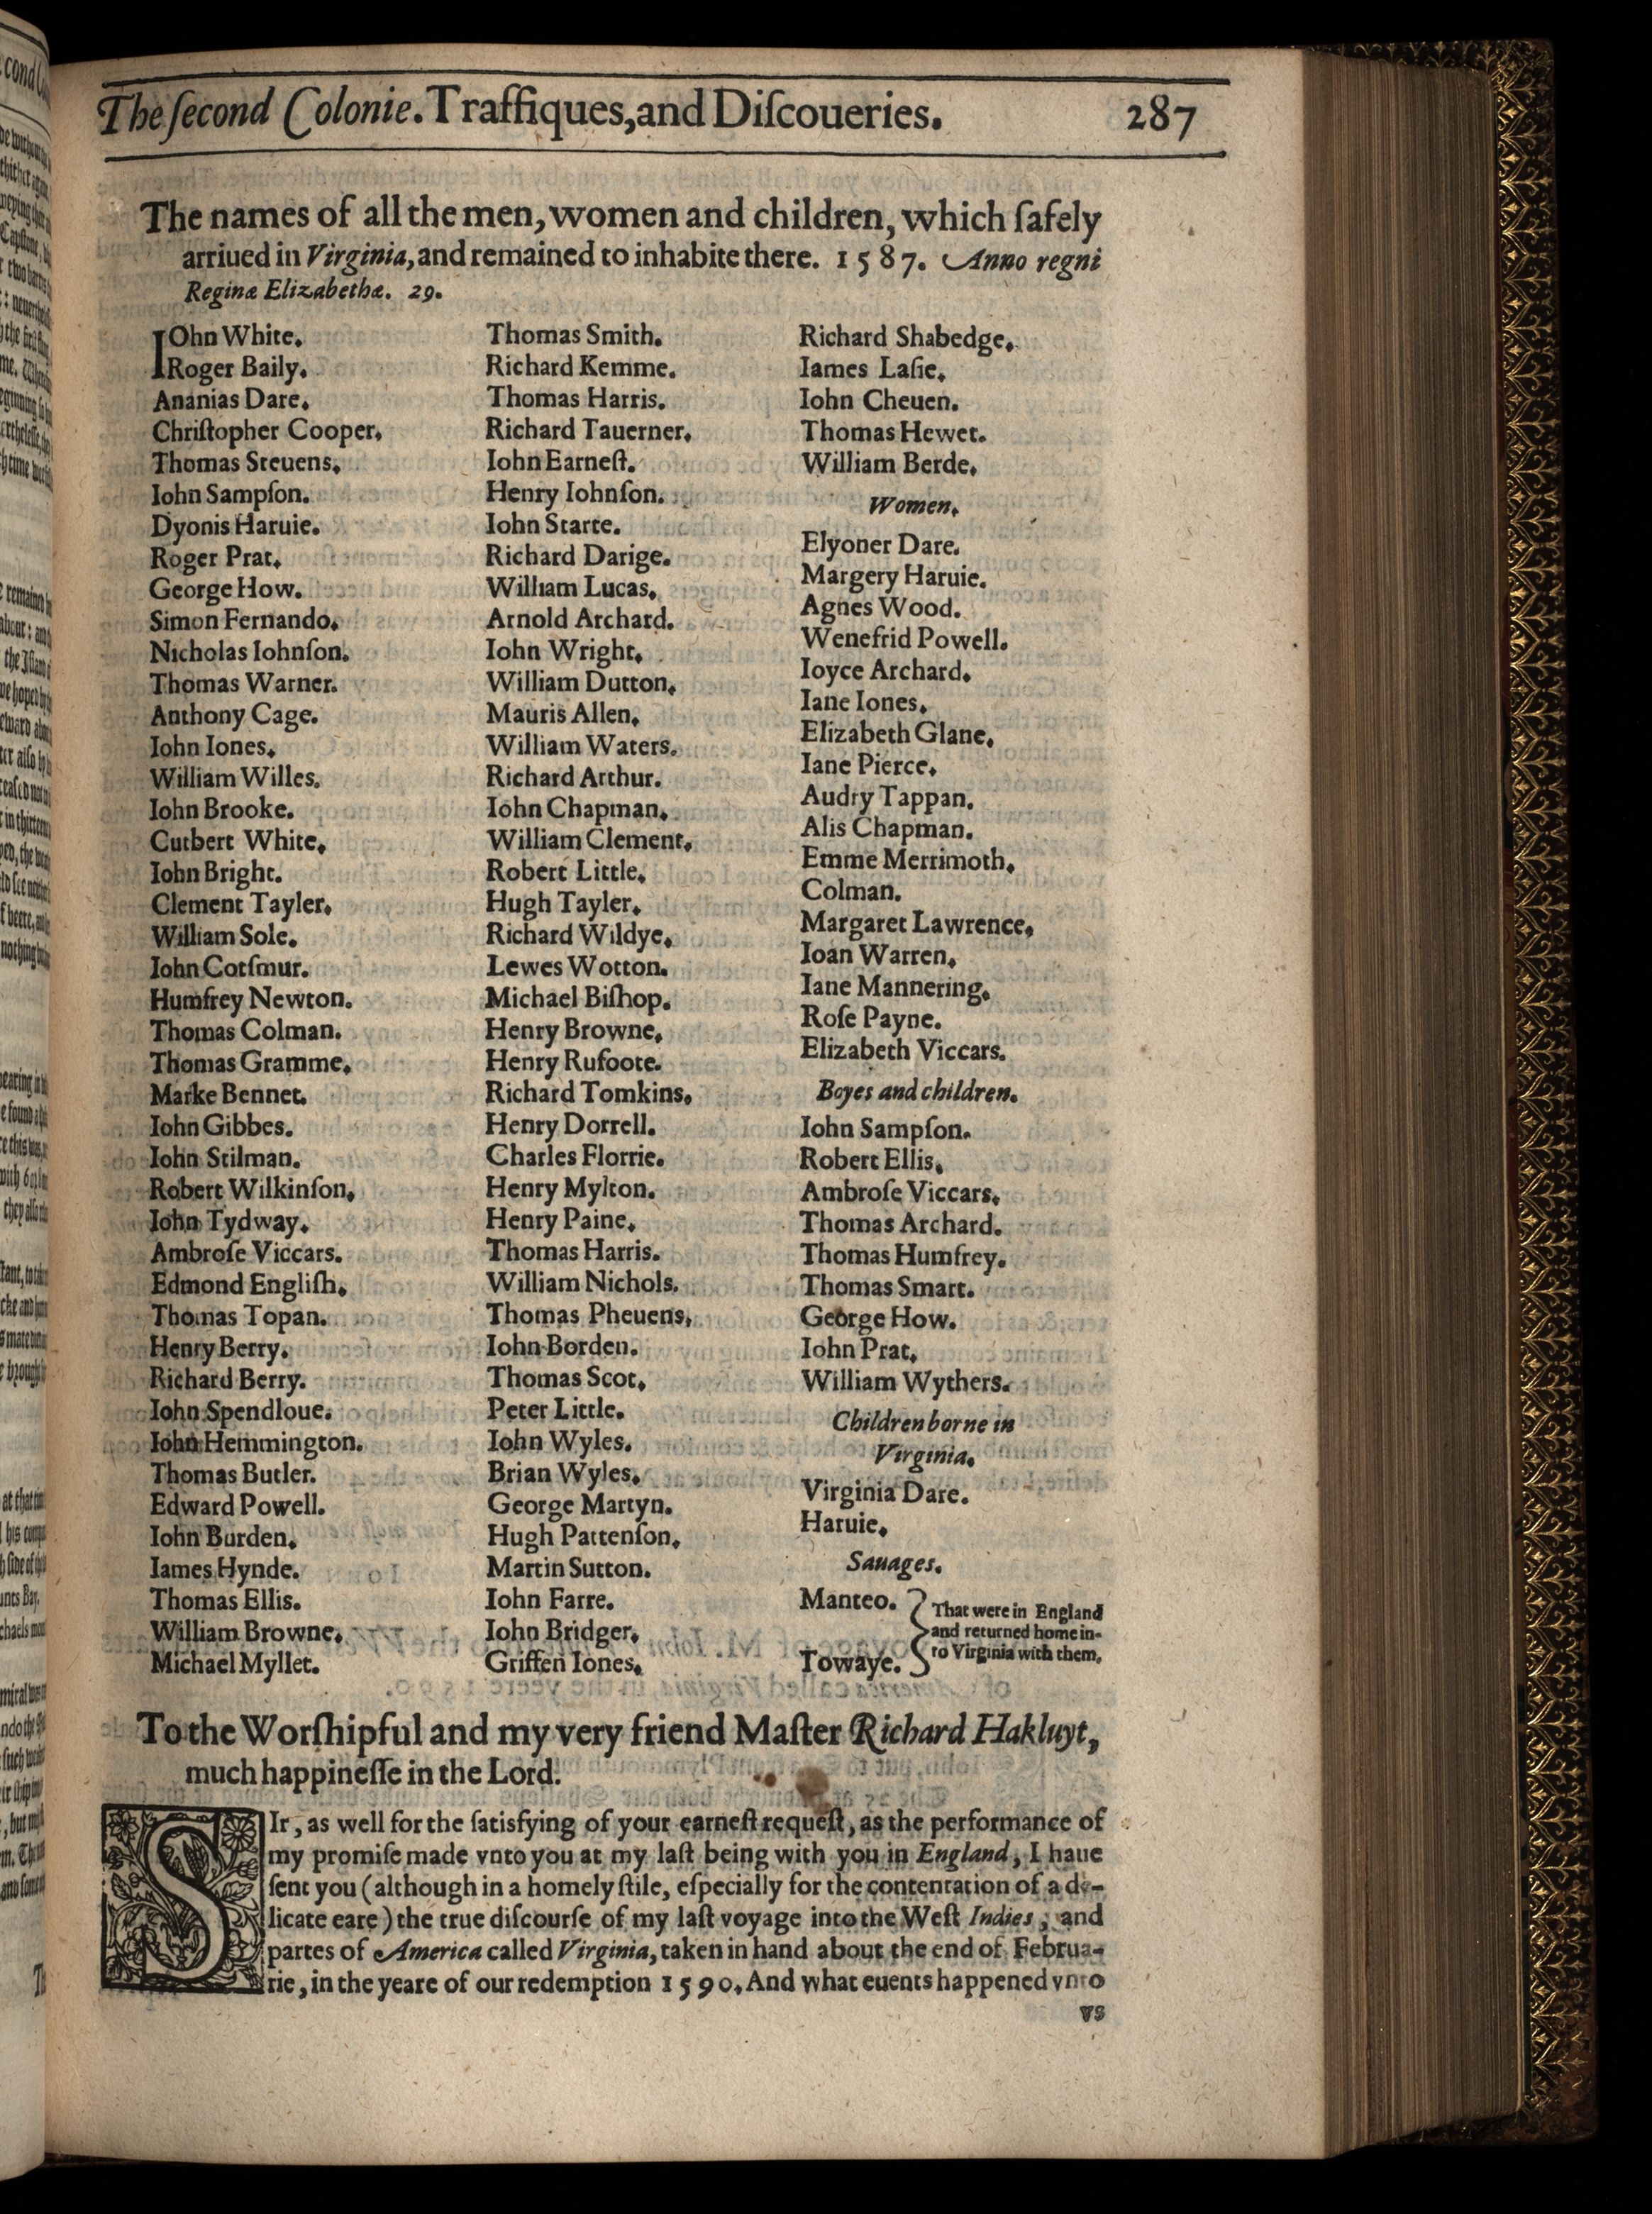 The ſecond Colonie. Traffiques, and Diſcoueries. 287
The names of all the men, women and children, which ſafely
arriued in Virginia, and remained to inhabite there. 1587. Anno regni
Reginæ Elizabethæ. 29.
IOhn White.
Roger Baily.
Ananias Dare.
Chriſtopher Cooper.
Thomas Steuens.
Iohn Sampſon.
Dyonis Haruie.
Roger Prat.
George How.
Simon Fernando.
Nicholas Iohnſon.
Thomas Warner.
Anthony Cage.
Iohn Iones.
William Willes.
Iohn Brooke.
Cutbert White.
Iohn Bright.
Clement Tayler.
William Sole.
Iohn Cotſmur.
Humfrey Newton.
Thomas Colman.
Thomas Gramme.
Marke Bennet.
Iohn Gibbes.
Iohn Stilman.
Robert Wilkinſon.
Iohn Tydway.
Ambroſe Viccars.
Edmond Engliſh.
Thomas Topan.
Henry Berry.
Richard Berry.
Iohn Spendloue.
Iohn Hemmington.
Thomas Butler.
Edward Powell.
Iohn Burden.
Iames Hynde.
Thomas Ellis.
William Browne.
Michael Myllet.
Thomas Smith.
Richard Kemme.
Thomas Harris.
Richard Tauerner.
Iohn Earneſt.
Henry Iohnſon.
Iohn Starte.
Richard Darige.
William Lucas.
Arnold Archard.
Iohn Wright.
William Dutton.
Mauris Allen.
William Waters.
Richard Arthur.
Iohn Chapman.
William Clement.
Robert Little.
Hugh Tayler.
Richard Wildye.
Lewes Wotton.
Michael Biſhop.
Henry Browne.
Henry Rufoote.
Richard Tomkins.
Henry Dorrell.
Charles Florrie.
Henry Mylton.
Henry Paine.
Thomas Harris.
William Nichols.
Thomas Pheuens.
Iohn Borden.
Thomas Scot.
Peter Little.
Iohn Wyles.
Brian Wyles.
George Martyn.
Hugh Pattenſon.
Martin Sutton.
Iohn Farre.
Iohn Bridger.
Griffen Iones.
Richard Shabedge.
Iames Laſie.
Iohn Cheuen.
Thomas Hewet.
William Berde.
Women.
Elyoner Dare.
Margery Haruie.
Agnes Wood.
Wenefrid Powell.
Ioyce Archard.
Iane Iones.
Elizabeth Glane.
Iane Pierce.
Audry Tappan.
Alis Chapman.
Emme Merrimoth.
Colman.
Margaret Lawrence.
Ioan Warren.
Iane Mannering.
Roſe Payne.
Elizabeth Viccars.
Boyes and children.
Iohn Sampſon.
Robert Ellis.
Ambroſe Viccars.
Thomas Archard.
Thomas Humfrey.
Thomas Smart.
George How.
Iohn Prat.
William Wythers.
Children borne in
Virginia.
Virginia Dare.
Haruie.
Sauages.
Manteo.
Towaye.
That were in England
and returned home in-
to Virginia with them.
To the Worſhipful and my very friend Maſter Richard Hakluyt,
much happineſſe in the Lord.
SIr, as well for the ſatisfying of your earneſt requeſt, as the performance of
my promiſe made vnto you at my laſt being with you in England, I haue
ſent you (although in a homely ſtile, eſpecially for the contentation of a de-
licate eare) the true diſcourſe of my laſt voyage into the Weſt Indies, and
partes of America called Virginia, taken in hand about the end of Februa-
rie, in the yeare of our redemption 1590. And what euents happened vnto
vs